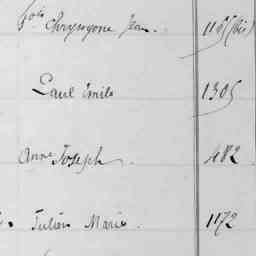 Chrysogone Jean. 1165 (bis)
Paul Emile 1305
Anne Joseph. 482
Julien Marie. 1172